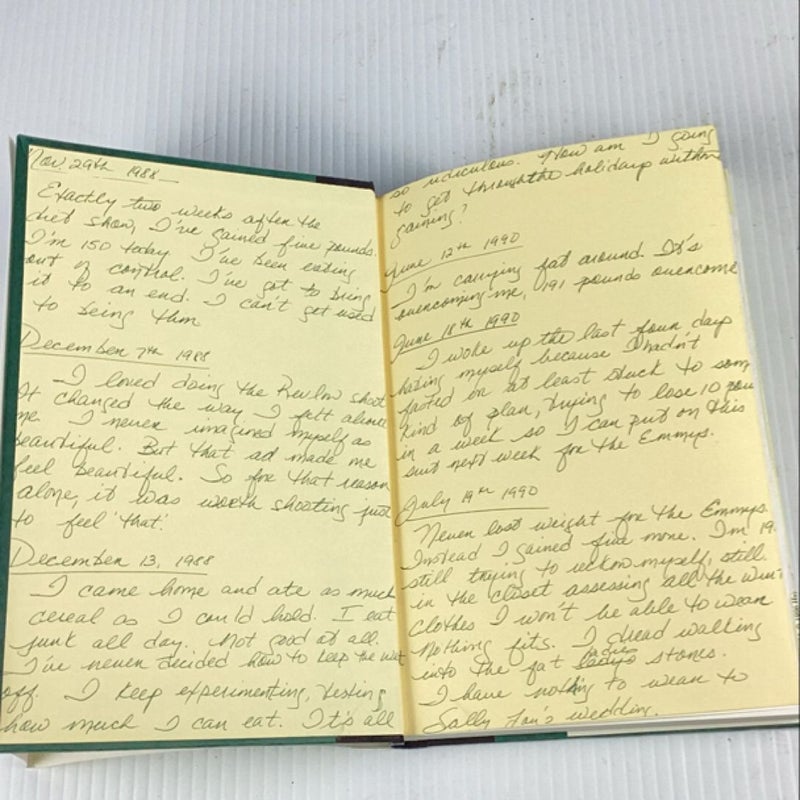 Nov. 29th 1988
Exactly two weeks after the
diet show, I've gained five pounds.
I'm 150 today. I've been eating
out of control. I've got to bring
it to an end. I can't get used
to being thin.
December 7th 1988
I loved doing the Revlon shoot
It changed the way I felt about
me. I never imagined myself as
beautiful. But that ad made me
feel beautiful. So for that reason
alone, it was worth shooting just
to feel 'that'.
December 13, 1988
I came home and ate as much
cereal as I could hold. I eat
junk all day. Not good at all.
I've never decided how to keep the
off. I keep experimenting, testing
how much I can eat. It's all
so ridiculous. How am I going
to get through the holidays without
gaining?
June 12th 1990
I'm carrying fat around. It's
overcoming me, 191 pounds overcome
June 18th 1990
I woke up the last four days
hating myself because I hadn't
fasted or at least stuck to some
kind of plan, trying to lose 10
in a week so I can put on this
suit next week for the Emmys.
July 19th 1990
Never lost weight for the Emmys.
Instead I gained five more. I'm 19
still trying to reckon myself, still
in the closet assessing all the
clothes I won't be able to wear
Nothing fits. I dread walking
into the fat ladies stores.
I have nothing to wear to
Sally Lou's wedding.